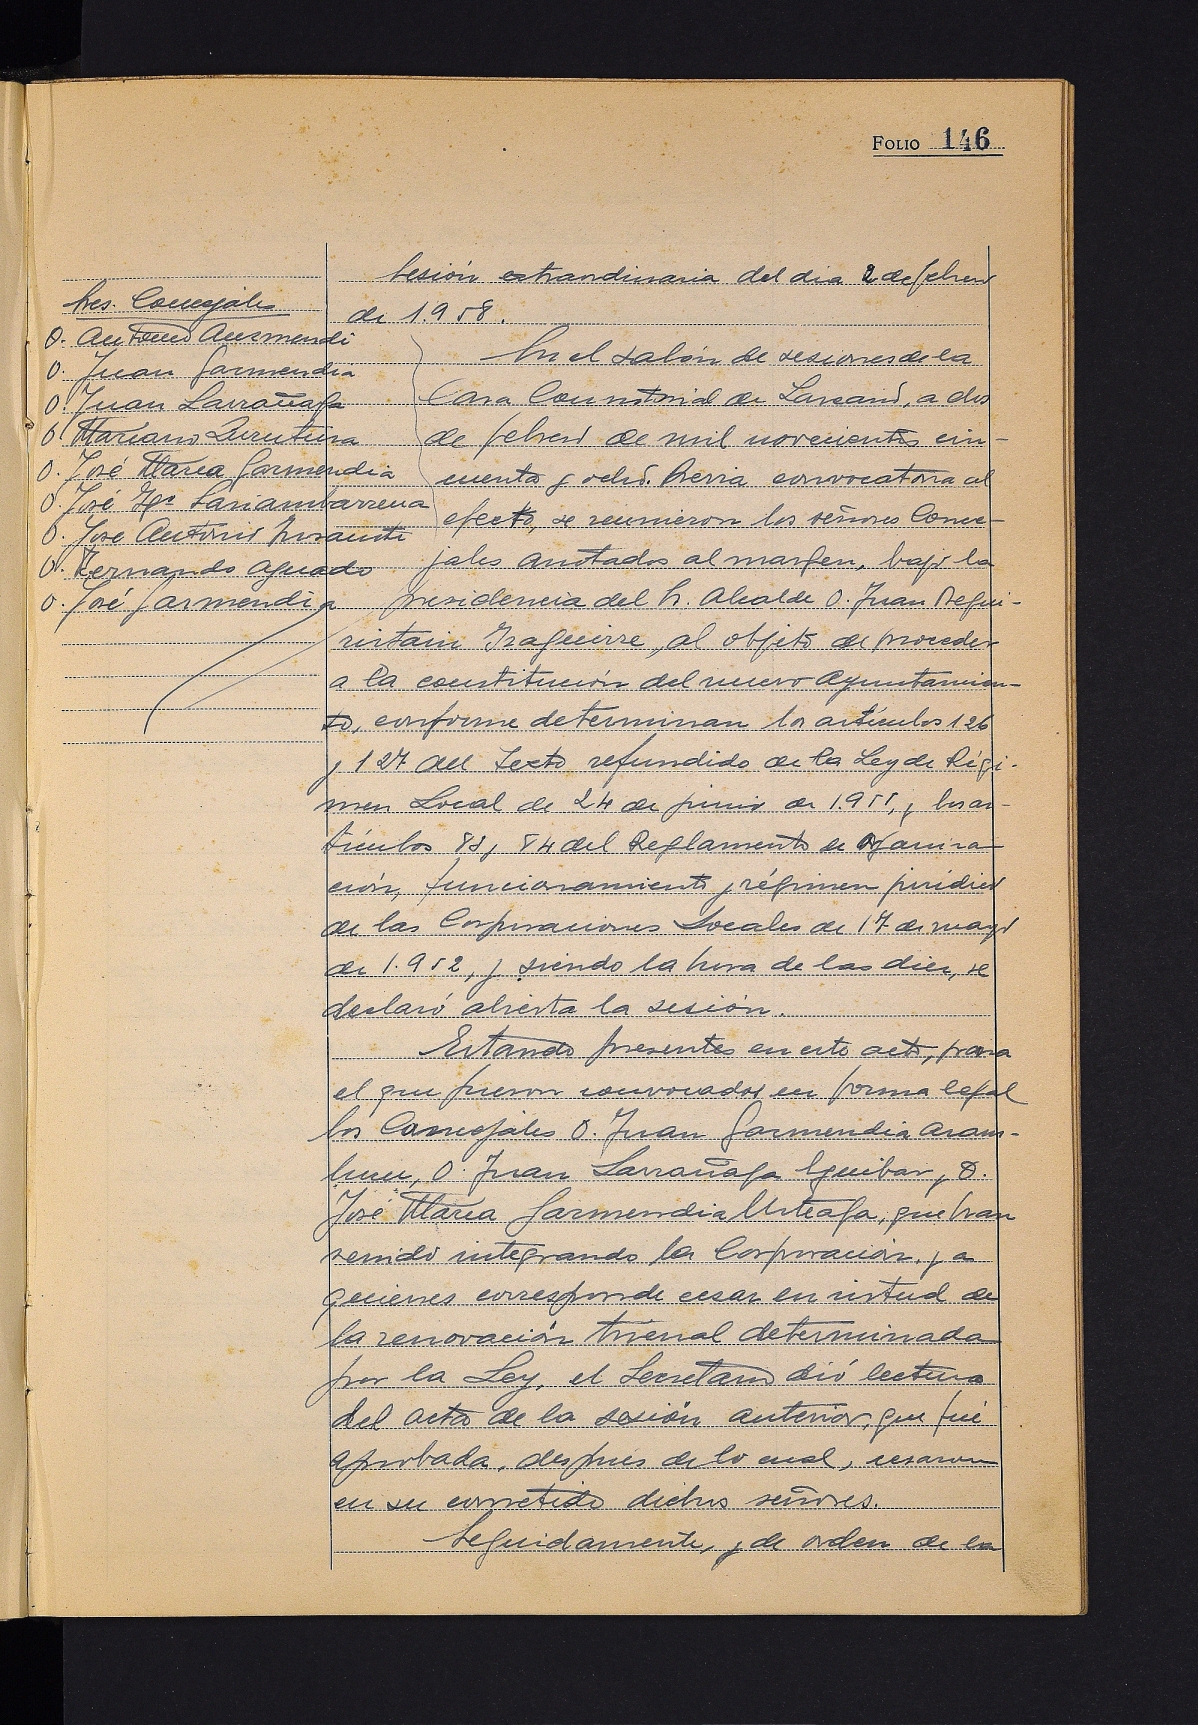 FOLIO 146
Sesión extraordinaria del dia 2 de febrero
de 1.958.
Sres. Concejales
D. Antonio Auzmendi
D. Juan Garmendia
D. Juan Larrañaga
D. Mariano Zurutuza
D. José María Garmendia
D. José Mª Lasiambarrena
D. José Antonio
D. Fernando Aguado
D. José Garmendia
En el salón de sesiones de la
Casa Consistorial de Lazcano, a dos
de febrero de mil novecientos cin-
cuenta y ocho. Previa convocatoria al
efecto, se reunieron los señores Conce-
jales anotados al margen, bajo la
presidencia del Sr. Alcalde D. Juan Begui-
ristain Izaguirre, al objeto de proceder
a la constitución del nuevo Ayuntamien-
to, conforme determinan los artículos 126
y 127 del Texto refundido de la Ley de Régi-
men Local de 24 de junio de 1.955, y los ar-
tículos 83 y 84 del Reglamento de Organiza-
ción, funcionamiento y régimen jurídico
de las Corporaciones Locales de 17 de mayo
de 1.952, y siendo la hora de las diez, se
declaró abierta la sesión.
Estando presentes en este acto, para
el que fueron convocados en forma legal
los Concejales D. Juan Garmendia Aram-
buru, D. Juan Larrañaga Eguibar y D.
José María Garmendia Urteaga, que han
venido integrando la Corporación, y a
quienes corresponde cesar en virtud de
la renovación trienal determinada
por la Ley, el Secretario dió lectura
del acta de la sesión anterior, que fué
aprobada, después de lo cual, cesaron
en su cometido dichos señores.
Seguidamente, y de orden de la